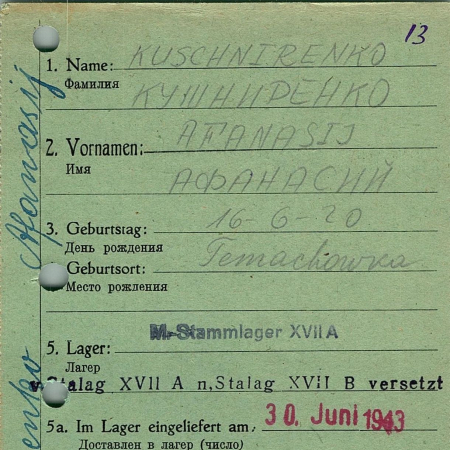 13
1. Name: KUSCHNIRENKO
Фамилия КУШНИРЕНКО
2. Vornamen: AFANASIJ
Имя АФАНАСИЙ
3. Geburtstag: 16-6-20
День рождения
Geburtsort: Temachowka
Место рождения
M.-Stammlager XVII A
5. Lager:
Лагерь
v.Stalag XVII A n.Stalag XVII B versetzt
5a. Im Lager eingeliefert am 30. Juni 1943
Доставлен в лагерь (число)
enko Afanasij